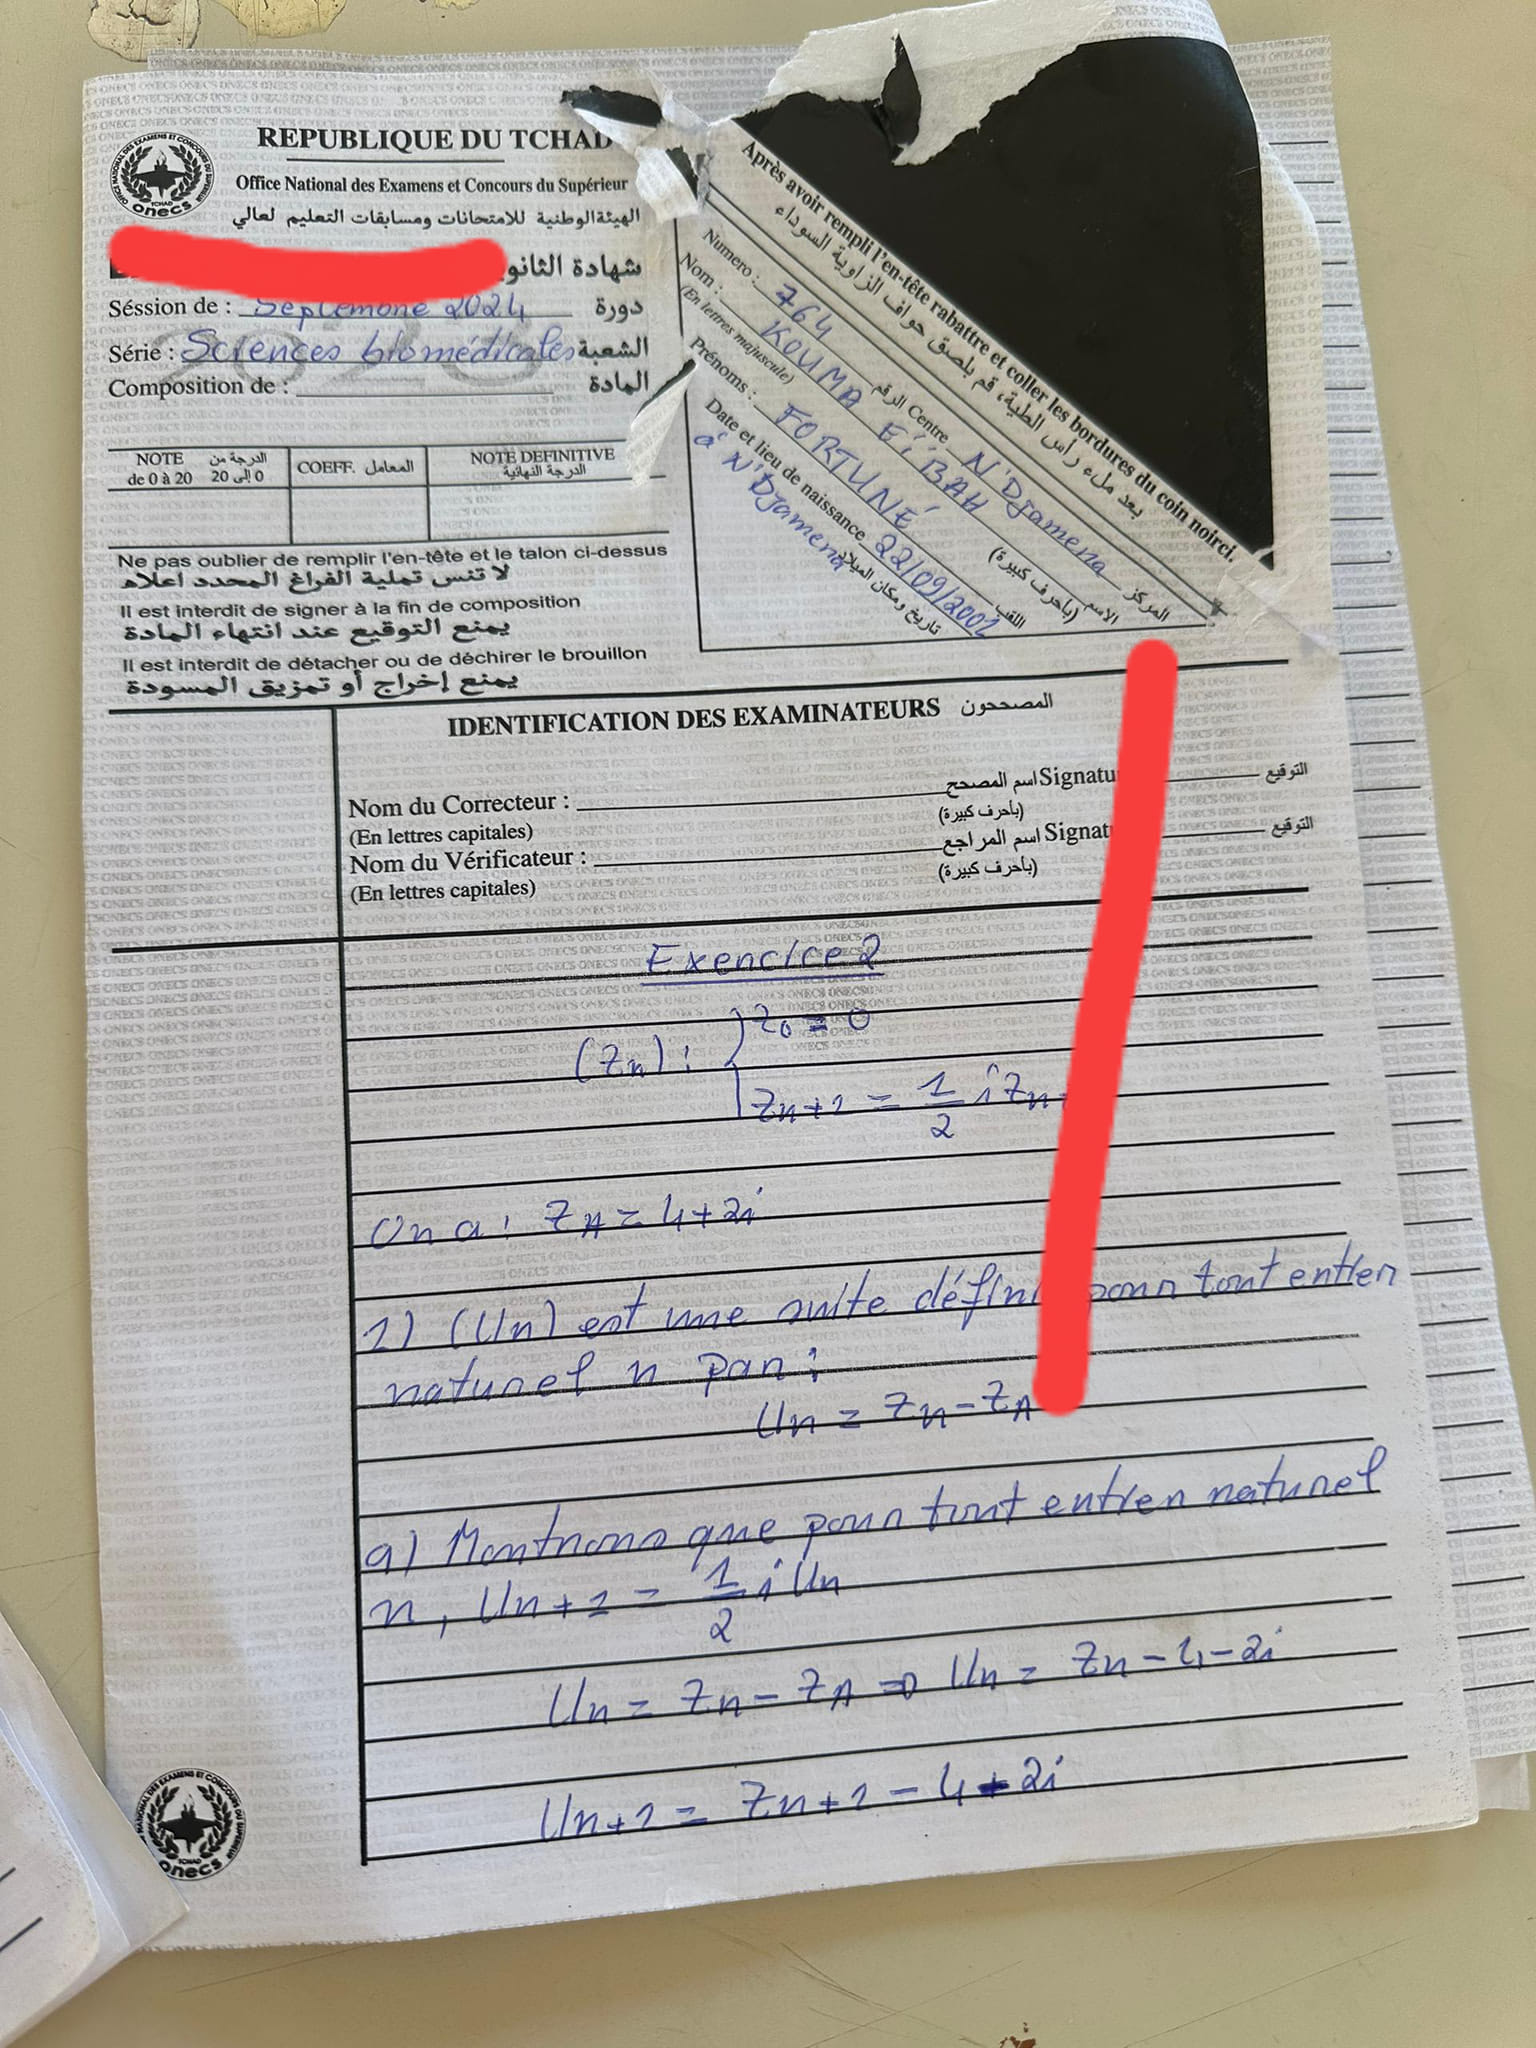 REPUBLIQUE DU TCHAD
Office National des Examens et Concours du Supérieur
الهيئة الوطنية للامتحانات ومسابقات التعليم لعالي
onecs
شهادة الثانو
Séssion de : Septembre 2024 دورة
Série : Sciences biomédicales الشعبة
Composition de : المادة
NOTE الدرجة من
de 0 à 20 0 إلى 20
COEFF. المعامل
NOTE DEFINITIVE
الدرجة النهائية
Ne pas oublier de remplir l'en-tête et le talon ci-dessus
لا تنس تملية الفراغ المحدد اعلاه
Il est interdit de signer à la fin de composition
يمنع التوقيع عند انتهاء المادة
Il est interdit de détacher ou de déchirer le brouillon
يمنع إخراج أو تمزيق المسودة
Après avoir rempli l'en-tête rabattre et coller les bordures du coin noirci.
بعد ملء رأس الطية، قم بلصق حواف الزاوية السوداء
Numero : 764 الرقم Centre N'Djamena المركز
Nom : KOUMA EI BAH الاسم
(En lettres majuscule) (بأحرف كبيرة)
Prénoms : FORTUNÉ اللقب
Date et lieu de naissance 22/09/2002 تاريخ ومكان الميلاد
à N'Djamena
IDENTIFICATION DES EXAMINATEURS المصححون
Nom du Correcteur : اسم المصحح Signatu التوقيع
(En lettres capitales) (بأحرف كبيرة)
Nom du Vérificateur : اسم المراجع Signat التوقيع
(En lettres capitales) (بأحرف كبيرة)
Exercice 2
(Zn) : { Z0 = 0
Zn+1 = 1/2 i Zn
On a : ZA = 4+2i
1) (Un) est une suite défini pour tout entier
naturel n par :
Un = Zn - ZA
a) Montrons que pour tout entier naturel
n, Un+1 = 1/2 i Un
Un = Zn - ZA => Un = Zn - 4 - 2i
Un+1 = Zn+1 - 4 - 2i
onecs